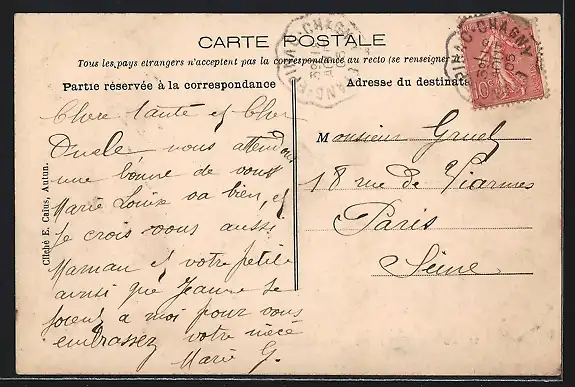 CARTE POSTALE
Tous les pays etrangers n'acceptent pas la correspondance au recto (se renseigner
Partie réservée à la correspondance
Adresse du destinata
Chere tante et Cher
Oncle nous attendons
une bonne de vous
Marie Louise va bien, et
je crois vous aussi
Maman et votre petite
ainsi que Jeanne se
joint à moi pour vous
embrasser votre nièce
Marie G.
Monsieur Gruel
18 rue de
Paris
Seine
Cliché E. Caius, Autun.
CHAGNY
05
10